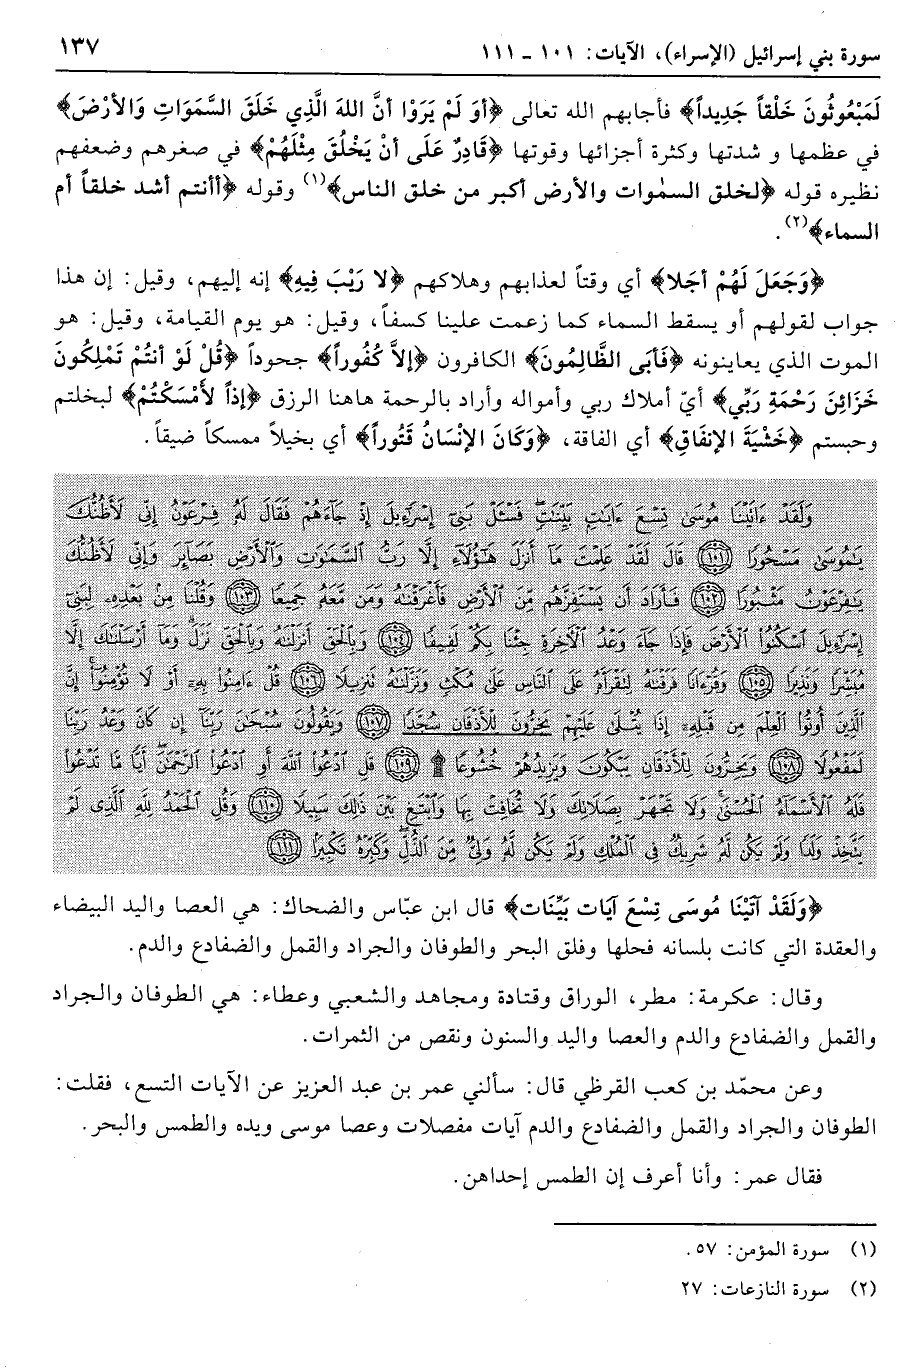 سورة بني إسرائيل (الإسراء)، الآيات: ١٠١ - ١١١
١٣٧
لَمَبْعُوثُونَ خَلْقاً جَدِيداً﴾ فأجابهم الله تعالى ﴿أوَ لَمْ يَرَوْا أنَّ اللهَ الَّذِي خَلَقَ السَّمَوَاتِ وَالأرْضَ﴾
في عظمها و شدتها وكثرة أجزائها وقوتها ﴿قَادِرٌ عَلَى أنْ يَخْلُقَ مِثْلَهُمْ﴾ في صغرهم وضعفهم
نظيره قوله ﴿لخلق السمٰوات والأرض أكبر من خلق الناس﴾(١) وقوله ﴿أأنتم أشد خلقاً أم
السماء﴾(٢).
﴿وَجَعَلَ لَهُمْ أجَلا﴾ أي وقتاً لعذابهم وهلاكهم ﴿لا رَيْبَ فِيهِ﴾ إنه إليهم، وقيل: إن هذا
جواب لقولهم أو يسقط السماء كما زعمت علينا كسفاً، وقيل: هو يوم القيامة، وقيل: هو
الموت الذي يعاينونه ﴿فَأبَى الظَّالِمُونَ﴾ الكافرون ﴿إلاَّ كُفُوراً﴾ جحوداً ﴿قُلْ لَوْ أنتُمْ تَمْلِكُونَ
خَزَائِنَ رَحْمَةِ رَبِّي﴾ أيّ أملاك ربي وأمواله وأراد بالرحمة هاهنا الرزق ﴿إذاً لأمْسَكْتُمْ﴾ لبخلتم
وحبستم ﴿خَشْيَةَ الإنفَاقِ﴾ أي الفاقة، ﴿وَكَانَ الإنْسَانُ قَتُوراً﴾ أي بخيلاً ممسكاً ضيقاً.
وَلَقَدْ ءَاتَيْنَا مُوسَىٰ تِسْعَ ءَايَٰتٍۭ بَيِّنَٰتٍۖ فَسْـَٔلْ بَنِىٓ إِسْرَٰٓءِيلَ إِذْ جَآءَهُمْ فَقَالَ لَهُۥ فِرْعَوْنُ إِنِّى لَأَظُنُّكَ
يَٰمُوسَىٰ مَسْحُورًا ﴿١٠١﴾ قَالَ لَقَدْ عَلِمْتَ مَآ أَنزَلَ هَٰٓؤُلَآءِ إِلَّا رَبُّ ٱلسَّمَٰوَٰتِ وَٱلْأَرْضِ بَصَآئِرَ وَإِنِّى لَأَظُنُّكَ
يَٰفِرْعَوْنُ مَثْبُورًا ﴿١٠٢﴾ فَأَرَادَ أَن يَسْتَفِزَّهُم مِّنَ ٱلْأَرْضِ فَأَغْرَقْنَٰهُ وَمَن مَّعَهُۥ جَمِيعًا ﴿١٠٣﴾ وَقُلْنَا مِنۢ بَعْدِهِۦ لِبَنِىٓ
إِسْرَٰٓءِيلَ ٱسْكُنُوا۟ ٱلْأَرْضَ فَإِذَا جَآءَ وَعْدُ ٱلْءَاخِرَةِ جِئْنَا بِكُمْ لَفِيفًا ﴿١٠٤﴾ وَبِٱلْحَقِّ أَنزَلْنَٰهُ وَبِٱلْحَقِّ نَزَلَۗ وَمَآ أَرْسَلْنَٰكَ إِلَّا
مُبَشِّرًا وَنَذِيرًا ﴿١٠٥﴾ وَقُرْءَانًا فَرَقْنَٰهُ لِتَقْرَأَهُۥ عَلَى ٱلنَّاسِ عَلَىٰ مُكْثٍ وَنَزَّلْنَٰهُ تَنزِيلًا ﴿١٠٦﴾ قُلْ ءَامِنُوا۟ بِهِۦٓ أَوْ لَا تُؤْمِنُوٓا۟ۚ إِنَّ
ٱلَّذِينَ أُوتُوا۟ ٱلْعِلْمَ مِن قَبْلِهِۦٓ إِذَا يُتْلَىٰ عَلَيْهِمْ يَخِرُّونَ لِلْأَذْقَانِ سُجَّدًا ﴿١٠٧﴾ وَيَقُولُونَ سُبْحَٰنَ رَبِّنَآ إِن كَانَ وَعْدُ رَبِّنَا
لَمَفْعُولًا ﴿١٠٨﴾ وَيَخِرُّونَ لِلْأَذْقَانِ يَبْكُونَ وَيَزِيدُهُمْ خُشُوعًا ۩ ﴿١٠٩﴾ قُلِ ٱدْعُوا۟ ٱللَّهَ أَوِ ٱدْعُوا۟ ٱلرَّحْمَٰنَۖ أَيًّا مَّا تَدْعُوا۟
فَلَهُ ٱلْأَسْمَآءُ ٱلْحُسْنَىٰۚ وَلَا تَجْهَرْ بِصَلَاتِكَ وَلَا تُخَافِتْ بِهَا وَٱبْتَغِ بَيْنَ ذَٰلِكَ سَبِيلًا ﴿١١٠﴾ وَقُلِ ٱلْحَمْدُ لِلَّهِ ٱلَّذِى لَمْ
يَتَّخِذْ وَلَدًا وَلَمْ يَكُن لَّهُۥ شَرِيكٌ فِى ٱلْمُلْكِ وَلَمْ يَكُن لَّهُۥ وَلِىٌّ مِّنَ ٱلذُّلِّۖ وَكَبِّرْهُ تَكْبِيرًۢا ﴿١١١﴾
﴿وَلَقَدْ آتَيْنَا مُوسَى تِسْعَ آيَات بَيِّنَات﴾ قال ابن عبّاس والضحاك: هي العصا واليد البيضاء
والعقدة التي كانت بلسانه فحلها وفلق البحر والطوفان والجراد والقمل والضفادع والدم.
وقال: عكرمة: مطر، الوراق وقتادة ومجاهد والشعبي وعطاء: هي الطوفان والجراد
والقمل والضفادع والدم والعصا واليد والسنون ونقص من الثمرات.
وعن محمّد بن كعب القرظي قال: سألني عمر بن عبد العزيز عن الآيات التسع، فقلت:
الطوفان والجراد والقمل والضفادع والدم آيات مفصلات وعصا موسى ويده والطمس والبحر.
فقال عمر: وأنا أعرف إن الطمس إحداهن.
(١) سورة المؤمن: ٥٧.
(٢) سورة النازعات: ٢٧